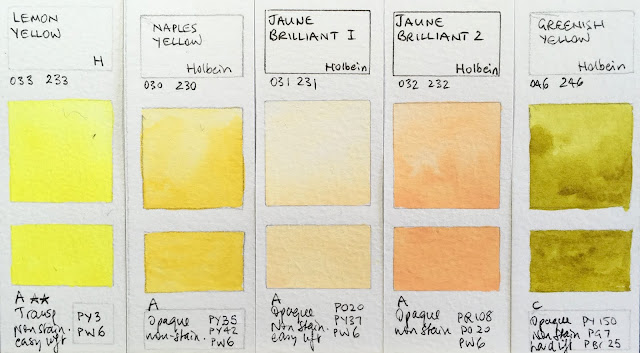 LEMON
YELLOW
H
033 233
A ★★
Transp
Nonstain.
easy lift
PY3
PW6
NAPLES
YELLOW
Holbein
030 230
A
Opaque
non-stain.
PY35
PY42
PW6
JAUNE
BRILLIANT 1
Holbein
031 231
A
Opaque
Non Stain.
easy lift
PO20
PY37
PW6
JAUNE
BRILLIANT 2
Holbein
032 232
A
Opaque
non stain
PR108
PO20
PW6
GREENISH
YELLOW
Holbein
046 246
C
Opaque
Nonstain
hard lift
PY150
PG7
PBr25